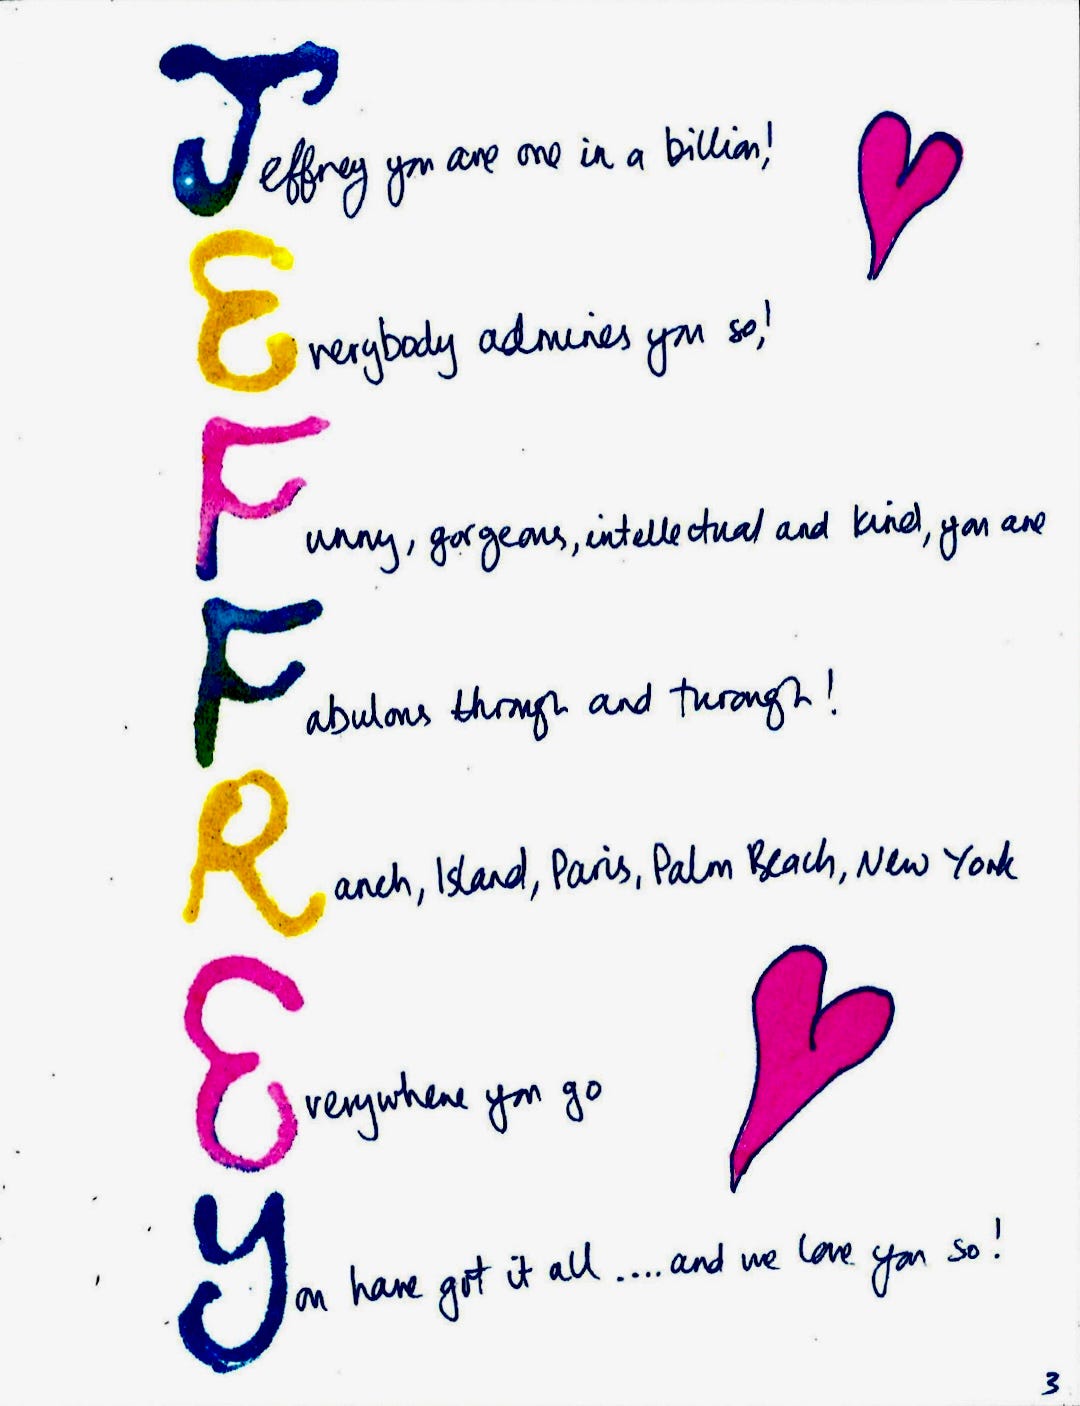 Jeffrey you are one in a billion!
Everybody admires you so!
Funny, gorgeous, intellectual and kind, you are
Fabulous through and through!
Ranch, Island, Paris, Palm Beach, New York
Everywhere you go
You have got it all ....and we love you so!
3